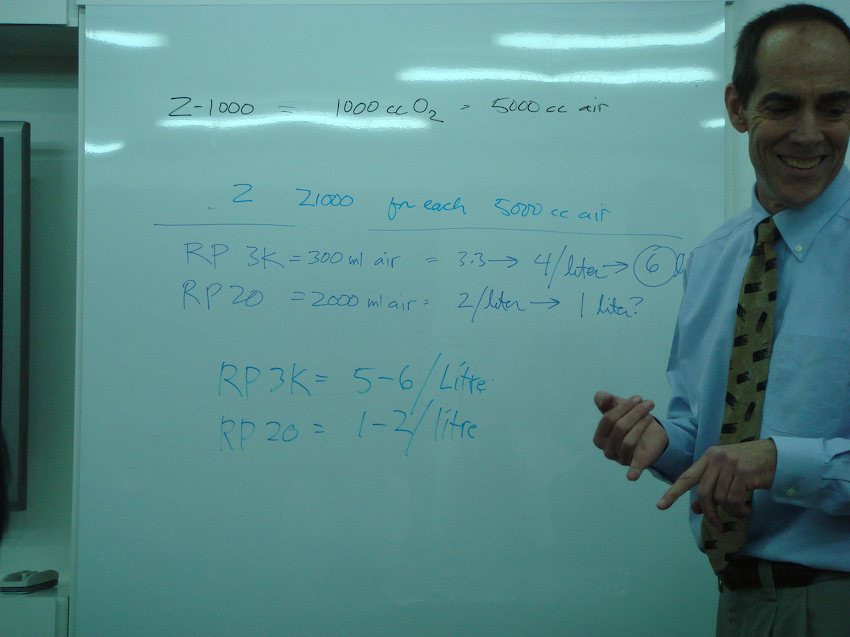 Z-1000 = 1000 cc O2 = 5000 cc air
Z Z1000 for each 5000 cc air
RP 3K = 300 ml air = 3.3 → 4/liter → 6
RP 20 = 2000 ml air = 2/liter → 1 liter?
RP 3K = 5-6/Litre
RP 20 = 1-2/litre